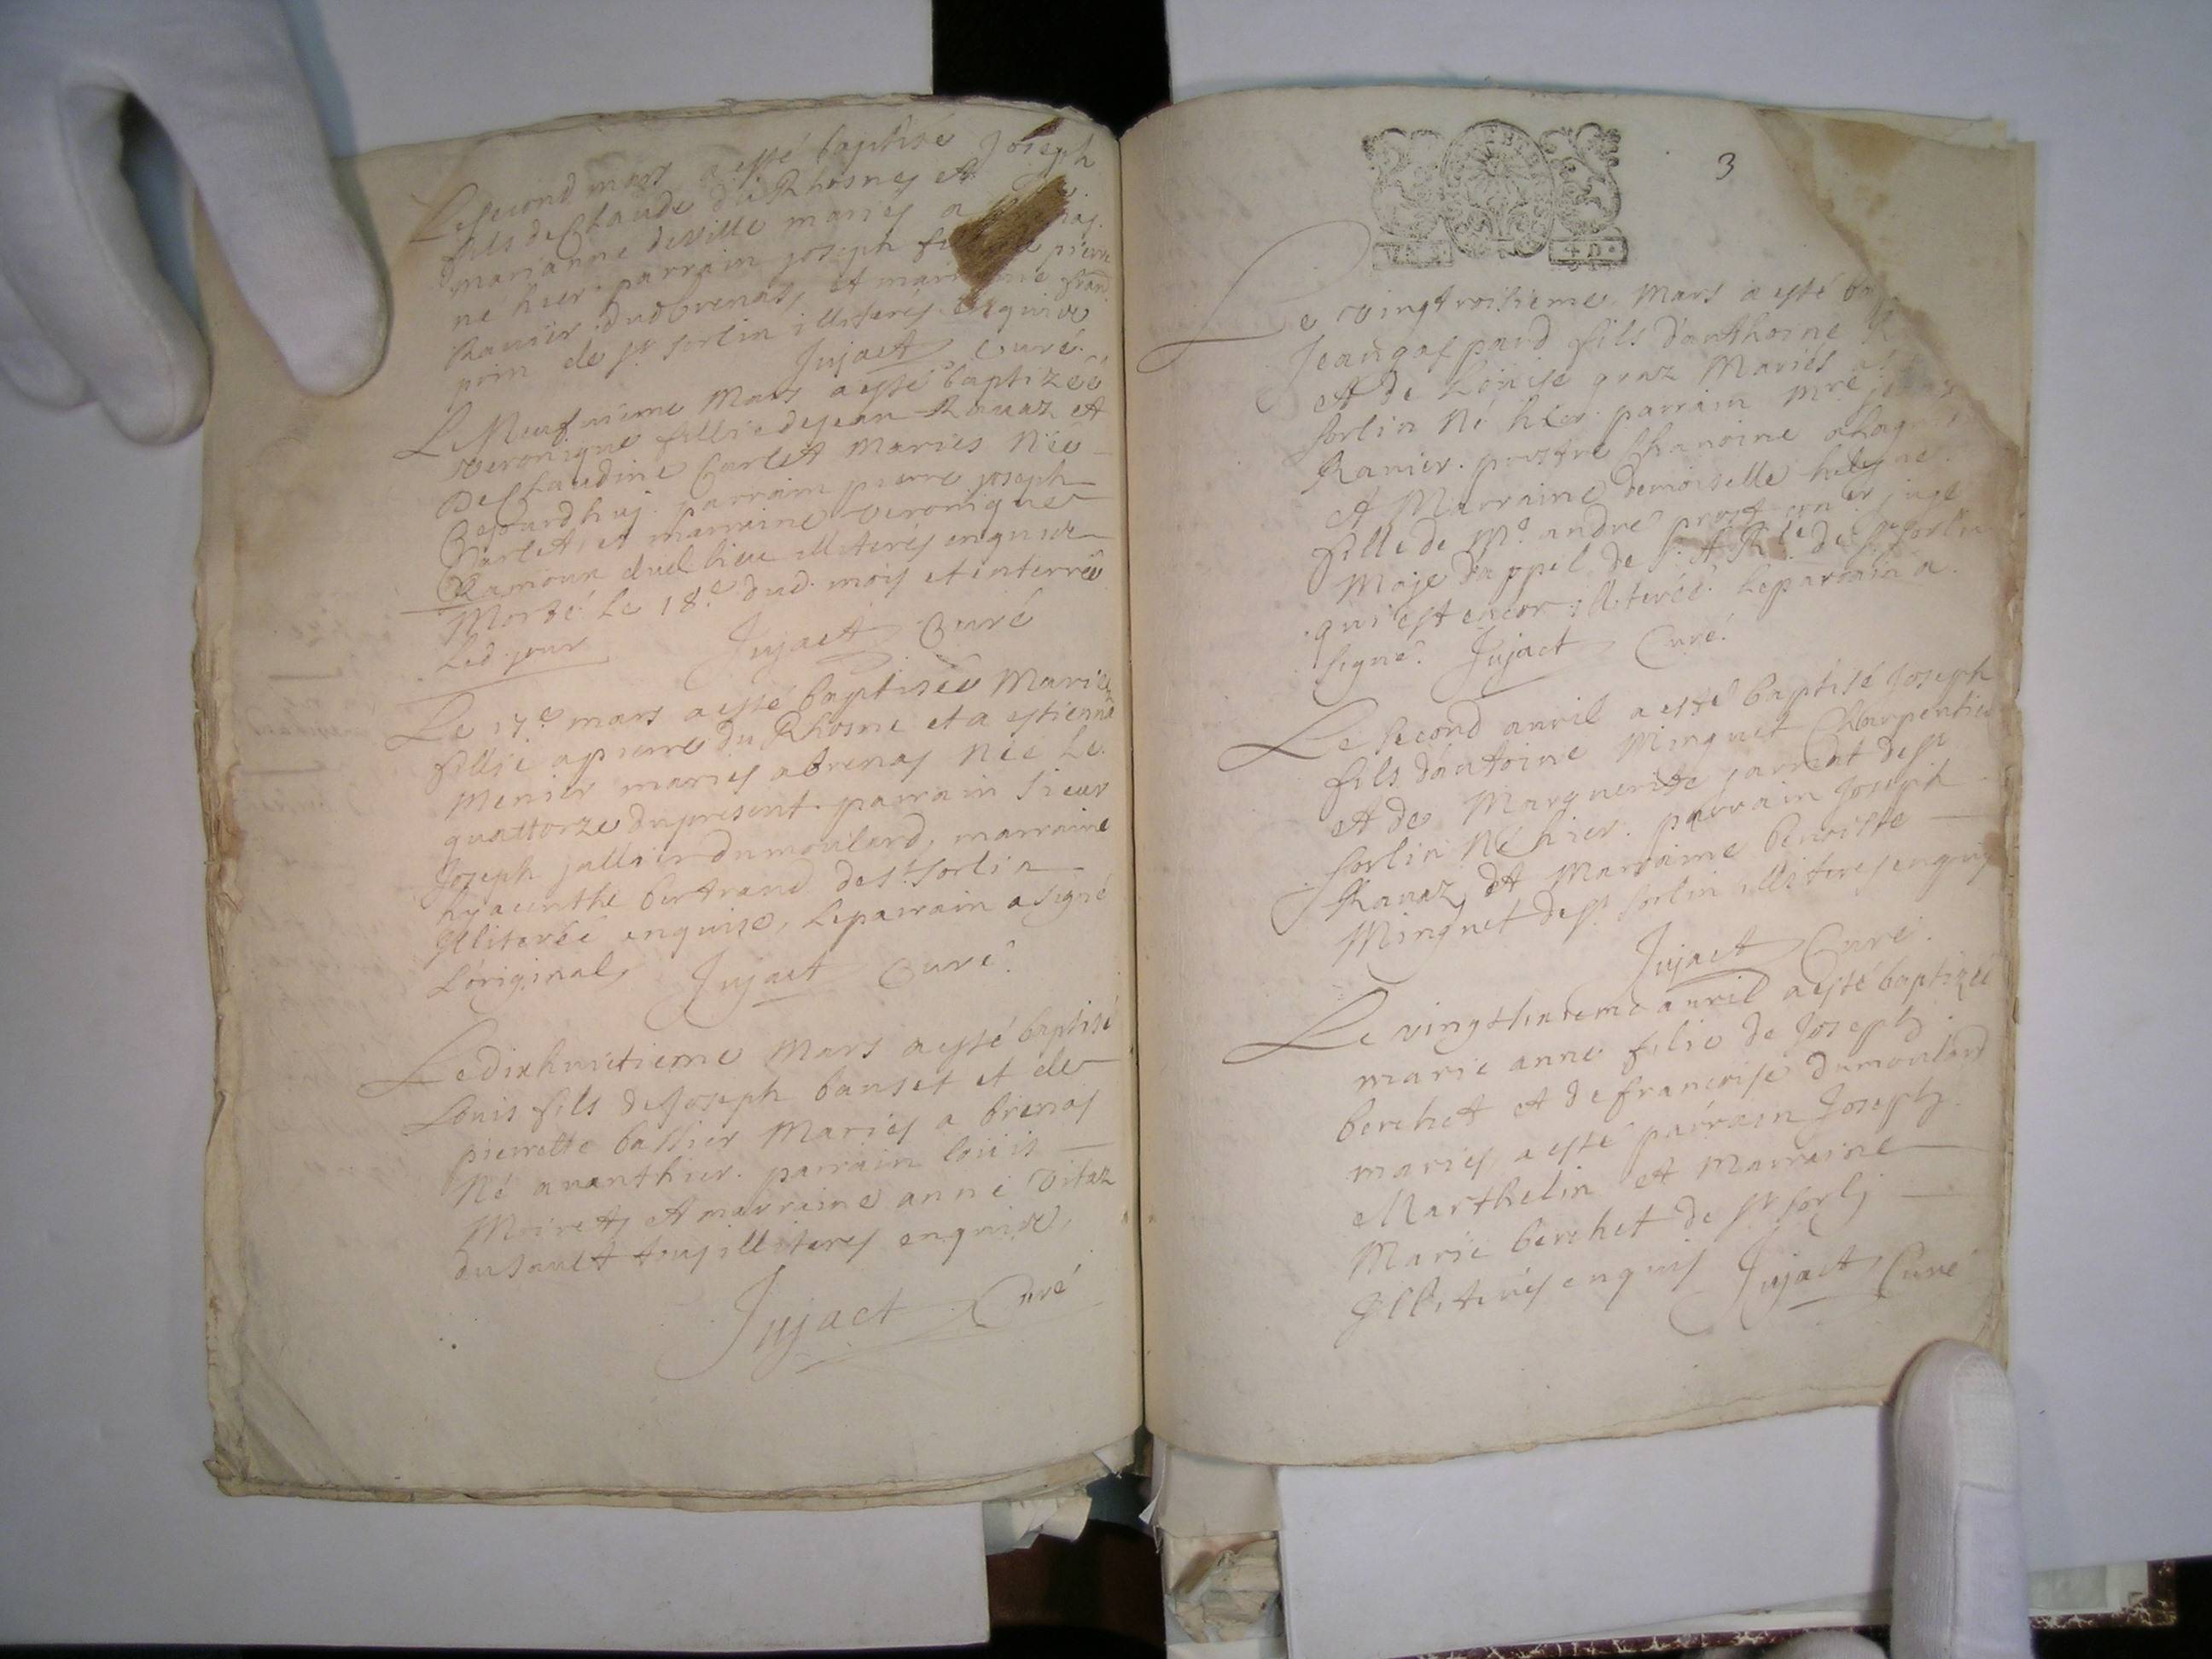 Le second mars a esté baptisé Joseph
fils de Claude du Rhosnes et
marianne deville mariés a
ne hier. parrain joseph pierre
Ravier dud brenas, et grand
prin de st sorlin illiterés enquise
Jujact Curé.
Le Neufvieme Mars a esté baptizeé
veronique fillie de jean Ravaz et
De Claudine Carlet mariés Neé
Cejourdhuj. parrain pierre joseph
Carlet, et marraine veronique
Ramoux dud lieu illiterés enquise
Morte Le 18.e dud. mois et interreé
led. jour Jujact Curé
Le 17.e mars a esté baptiseé Marie
fillie a pierre du Rhosne et a estienne
Menier mariés a brenas Neé Le
quattorze du present. parrain Sieur
Joseph jullier dumoulard, marraine
hyacinthe bertrand de st sorlin
Illitereé enquise, le parrain a signé
L'original Jujact Curé.
Le dixhuictieme Mars a esté baptisé
Louis fils de Joseph banset et de
pierrette bassier Mariés a brenas
Né avanthier. parrain louis
Moiret, et marraine anne Vitaz
du sault tous illiterés enquise,
Jujact Curé
3
4 D.
Le vingtroisieme Mars a esté
Jean gaspard fils d'anthoine
et de Louise graz Mariés
sorlin Né hier. parrain Mre
Ravier. prestre Chanoine a
et Marraine demoiselle
fille de Me andre prost juge
Maje d'appel de S. A. Rle de St Sorlin
qui est encor illitereé. Le parrain a
signé. Jujact Curé.
Le Second avril a esté baptisé Joseph
fils d'antoine Minguet Charpentier
et de Marguerite de st
sorlin Né hier. parrain Joseph
Ravaz, et Marraine benoiste
Minguet de st sorlin illiterés enquis
Jujact Curé.
Le avril a esté baptizeé
marie anne filie de Joseph
berchet et de francoise dumoulard
mariés a esté parrain Joseph
Marthelin et Marraine
Marie berchet de st sorlj
Illiterés enquis Jujact Curé